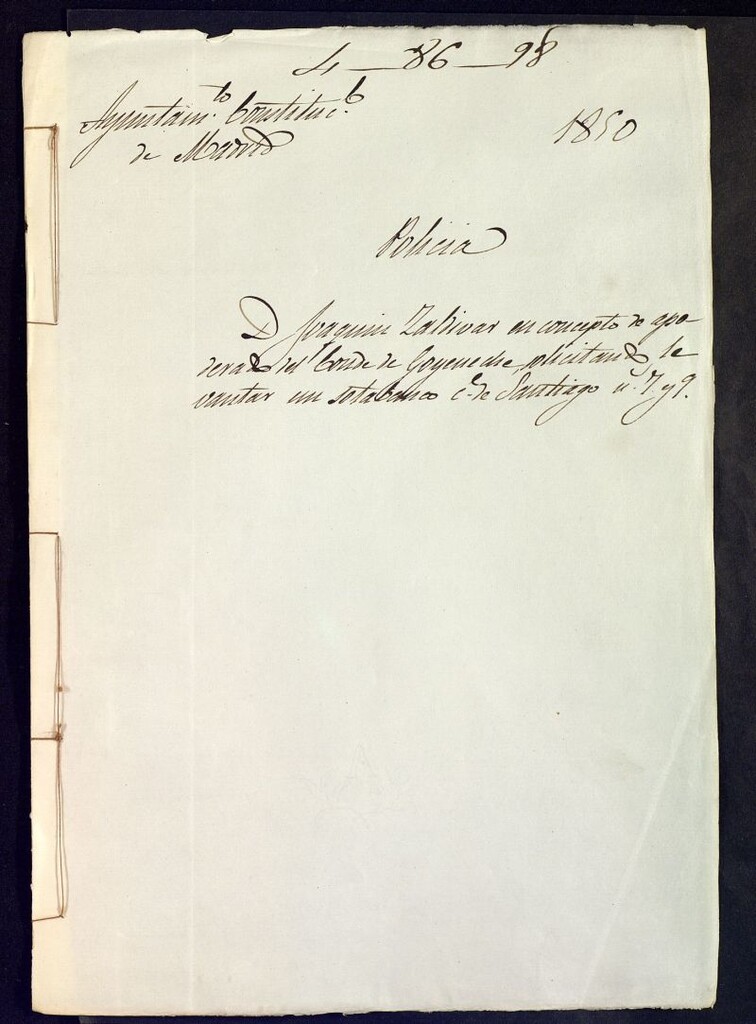 4—86—98
Ayuntam.to Constituc.l
de Madrid
1850
Policia
D Joaquin Zaldivar en concepto de apo-
derado del Conde de Goyeneche solicitando le
vantar un sotabanco c.e de Santiago n.s 7. y 9.